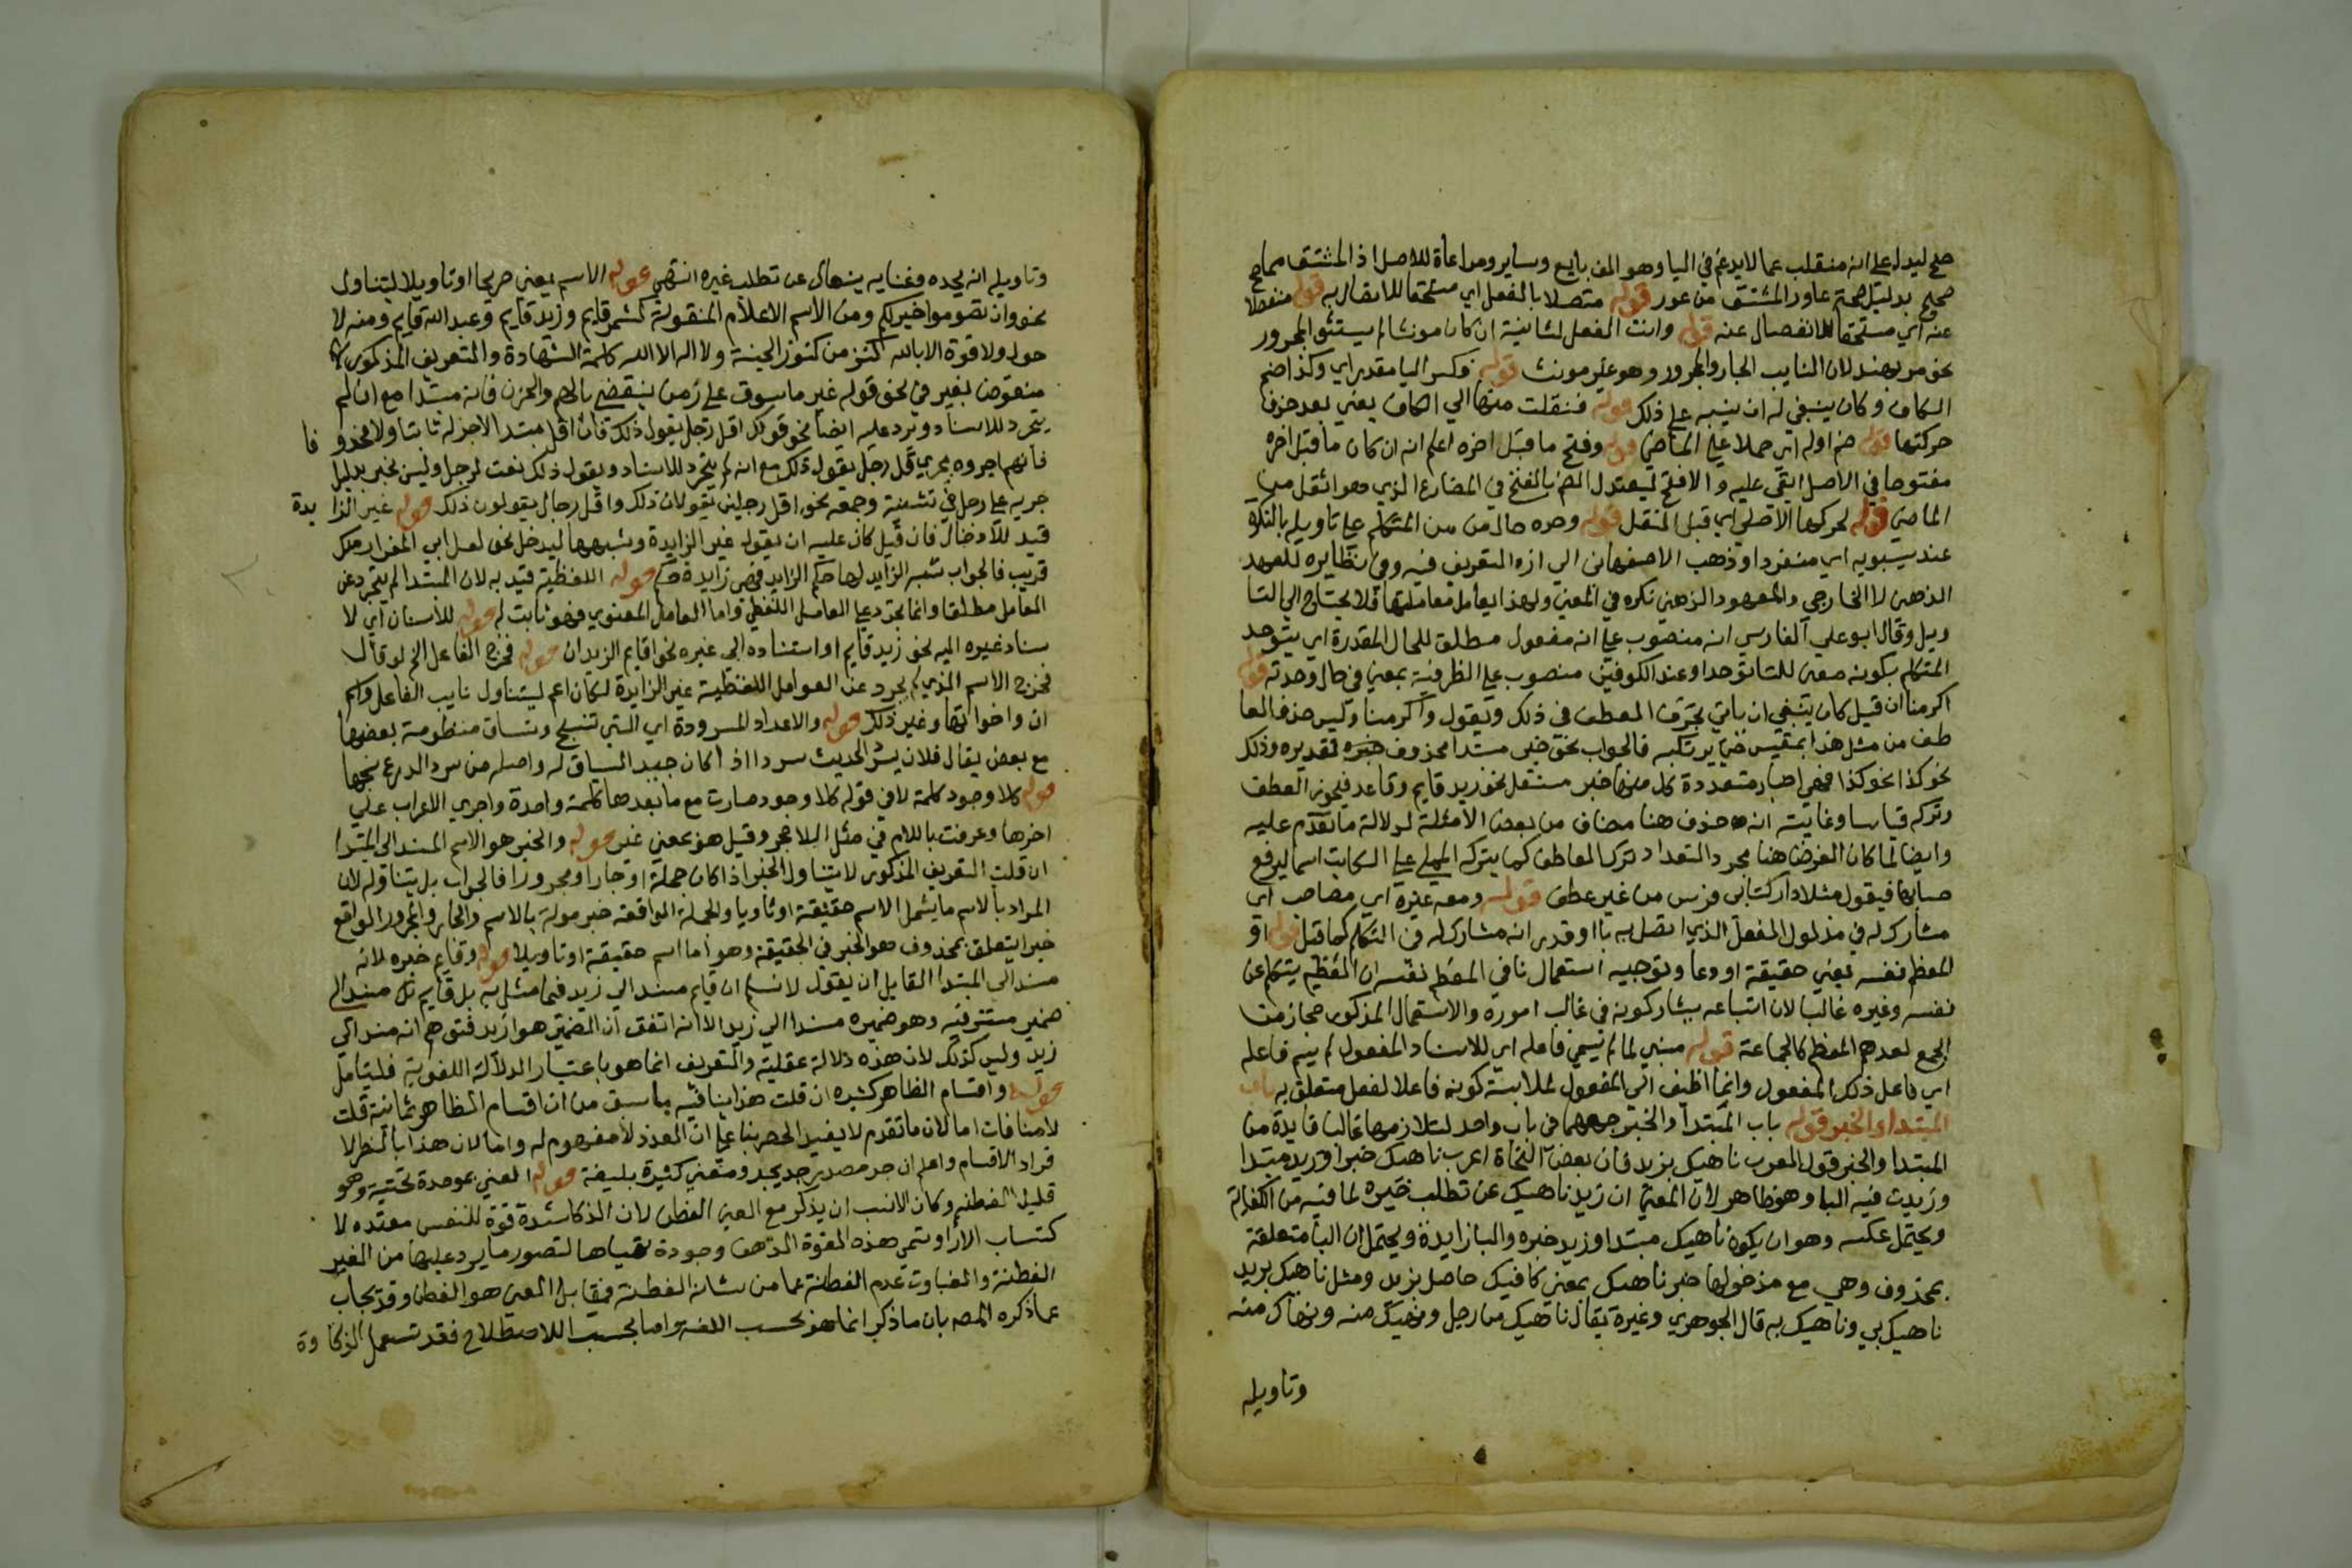 صح ليدل على انه منقلب عما لا يدغم في اليا وهو الف بايع وساير ومراعاة للاصل اذ المشتق مما صح
صحح بدليل صحة عاور المشتق من عور قوله متصلا بالفعل اي مستحقا للاتصال به قوله منفصلا
عنه اي مستحقا للانفصال عنه قوله وانث الفعل لشانية ان كان مونثا لم يستثن المجرور
نحو مر بهند لان النايب الجار والمجرور وهو غير مونث قوله وكسر اليا مقدر اي وكذا ضم
الكاف وكان ينبغي له ان ينبه على ذلك قوله فنقلت منها الي الكاف يعني بعد حذف
حركتها قوله ضم اوله اي حملا على الماضي قوله وفتح ما قبل اخره اعلم انه ان كان ما قبل اخره
مفتوحا في الاصل ابقي عليه والا فتح ليعتدل الضم بالفتح في المضارع الذي هو اثقل من
الماضي قوله لحركتها الاصلي اي قبل النقل قوله وحده حال من من المتكلم على تاويله بالنكرة
عند سيبويه اي منفردا وذهب الاصفهاني الى ان التعريف فيه وفي نظايره للعهد
الذهني لا الخارجي والمعهود الذهني نكره في المعني ولهذا يعامل معاملتها فلا يحتاج الي التا
ويل وقال ابو علي الفارسي انه منصوب على انه مفعول مطلق للحال المقدرة اي يتوحد
المتكلم بكونه معني للتا توحدا وعند الكوفيين منصوب على الظرفية بمعني في حال وحدته قوله
اكرمنا ان قيل كان ينبغي ان ياتي بحرف العطف في ذلك ويقول واكرمنا وليس حذف العا
طف من مثل هذا بمقيس حتى يرتكبه فالجواب نحو خبر مبتدا محذوف خبره تقديره وذلك
نحو كذا نحو كذا فهي اخبار متعددة كل منها خبر مستقل نحو زيد قايم وقاعد فيجوز العطف
وتركه قياسا وغايته انه حذف هنا مضاف من بعض الامثلة لدلالة ما تقدم عليه
وايضا لما كان الغرض هنا مجرد التعداد ترك العاطف كما يتركه المملي على الكاتب اسما ليرفع
حسابها فيقول مثلا دار كتاب فرس من غير عطف قوله ومعه غيره اي مصاحب اي
مشارك له في مدلول الفعل الذي اتصل به نا او قدر انه مشارك له في التكلم كما قيل قوله او
المعظم نفسه يعني حقيقة او ادعا وتوجيه استعمال نا في المعظم نفسه ان المعظم يتكلم عن
نفسه وغيره غالبا لان اتباعه يشاركونه في غالب اموره والاستعمال المذكور مجاز من
الجمع لعدهم المعظم كالجماعة قوله مبني لما لم يسمي فاعله اي للاسناد المفعول لم يسم فاعله
اي فاعل ذلك المفعول وانما اظيف الى المفعول لملابسة كونه فاعلا لفعل متعلق به باب
المبتدا والخبر قوله باب المبتدا والخبر جمعهما في باب واحد لتلازمهما غالبا فايدة من
المبتدا والخبر قول العرب ناهيك بزيد فان بعض النحاة اعرب ناهيك خبرا وزيد مبتدا
وزيدت فيه البا وهو ظاهر لان المعني ان زيدا ناهيك عن تطلب غيره لما فيه من الكفاية
ويحتمل عكسه وهو ان يكون ناهيك مبتدا وزيد خبره والبا زايدة ويحتمل ان البا متعلقة
بمحذوف وهي مع مدخولها خبر ناهيك بمعني كافيك حاصل بزيد ومثل ناهيك بزيد
ناهيك بي وناهيك به قال الجوهري وغيره يقال ناهيك من رجل ونهيك منه ونهاك منه
وتاويله
وتاويله انه يجده وغنايه ينهاك عن تطلب غيره انتهي قوله الاسم يعني صريحا او تاويلا ليتناول
نحو وان تصوموا خير لكم ومن الاسم الاعلام المنقولة كشمر قايم وزيد قايم وعبد الله قايم ومنه لا
حول ولا قوة الا بالله كنز من كنوز الجنة ولا اله الا الله كلمة الشهادة والتعريف المذكور
منقوض بغير في نحو قوله غير ماسوف على زمن ينقضي بالهم والحزن فانه مبتدا مع انه لم
يتجرد للاسناد ويرد عليه ايضا نحو قولك اقل رجل يقول ذلك فان اقل مبتدا لا خبر له ثابتا ولا محذو فا
فانهم اجروه مجري قل رجل يقول ذلك مع انه لم يتجرد للاسناد ويقول ذلك نعت لرجل وليس بخبر بدليل
جريه على رجل في تثنية وجمعه نحو اقل رجلين يقولان ذلك واقل رجال يقولون ذلك قوله غير الزا يدة
قيد للادخال فان قيل كان عليه ان يقول غير الزايدة وشبهها ليدخل نحو لعل ابي المغوار منك
قريب فالجواب شبه الزايد لها حكم الزايد فهي زايدة حكما قوله اللفظية قيد به لان المبتدا لم يتجرد عن
العامل مطلقا وانما تجرد عن العامل اللفظي واما العامل المعنوي فهو ثابت له قوله للاسناد اي لا
سناد غيره اليه نحو زيد قايم او استناده الى غيره نحو اقايم الزيدان قوله فخرج الفاعل الخ لو قال
فخرج الاسم الذي لم يجرد عن العوامل اللفظية غير الزايدة لكان اعم ليتناول نايب الفاعل واسم
ان واخواتها وغير ذلك قوله والاعداد المسرودة اي التي تنسج وتساق منظومة بعضها
مع بعض يقال فلان يسرد الحديث سردا اذا كان جيد السياق له واصله من سرد الدرع نسجها
قوله كلا وجود كلمة لا في قوله كلا وجود صارت مع ما بعدها كلمة واحدة واجري الاعراب علي
اخرها وعرفت باللام في مثل اللا هجر وقيل هو بمعني غير قوله والخبر هو الاسم المسند الى المبتدا
ان قلت التعريف المذكور لا يتناول الخبر اذا كان جملة او جارا ومجرورا فالجواب بل يتناوله لان
المراد بالاسم ما يشمل الاسم حقيقة او تاويلا والجملة الواقعة خبر مولة بالاسم والجار والمجرور الواقع
خبرا يتعلق بمحذوف هو الخبر في الحقيقة وهو اما اسم حقيقة او تاويلا قوله وقايم خبره لانه
مسند الى المبتدا القايل ان يقول لا نسلم ان قايم مسند الي زيد فيما مثل به بل قايم مسند الي
ضمير مستتر فيه وهو ضميره مسندا الي زيد الا انه اتفق ان الضمير هو ازيد فتوهم انه مسند الي
زيد وليس كذلك لان هذه دلالة عقلية والتعريف انما هو باعتبار الدلالة اللغوية فليتامل
قوله واقسام الظاهر كثيره ان قلت هذا ينافيه ما سبق من ان اقسام الظاهر ثمانية قلت
لا منافات اما لان ما تقدم لا يفيد الحصر بنا على ان العدد لا مفهوم له واما لان هذا بالنظر لا
فراد الاقسام واعلم ان جر مصدر جد يجد ومعني كثيرة بليغة قوله الغبي بموحدة تحتية وهو
قليل الفطنه وكان الانسب ان يذكر مع الغبي الفطن لان الذكا شدة قوة للنفس معتده لا
كتساب الارا وتسمي هذه القوة الذهن وجودة تهياها لتصور ما يرد عليها من الغير
الفطنة والغباوت عدم الفطنة عما من شانه الفطنة فمقابل الغبي هو الفطن وقد يجاب
عما ذكره المص بان ما ذكر انما هو بحسب اللغه واما بحسب الاصطلاح فقد تستعمل الذكا وة